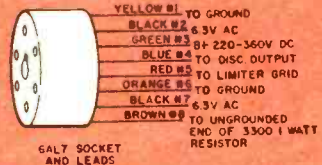 YELLOW #1 TO GROUND
BLACK #2 6.3V AC
GREEN #3 B+ 220-360V DC
BLUE #4 TO DISC. OUTPUT
RED #5 TO LIMITER GRID
ORANGE #6 TO GROUND
BLACK #7 6.3V AC
BROWN #8 TO UNGROUNDED
END OF 3300 1 WATT
RESISTOR
6AL7 SOCKET
AND LEADS